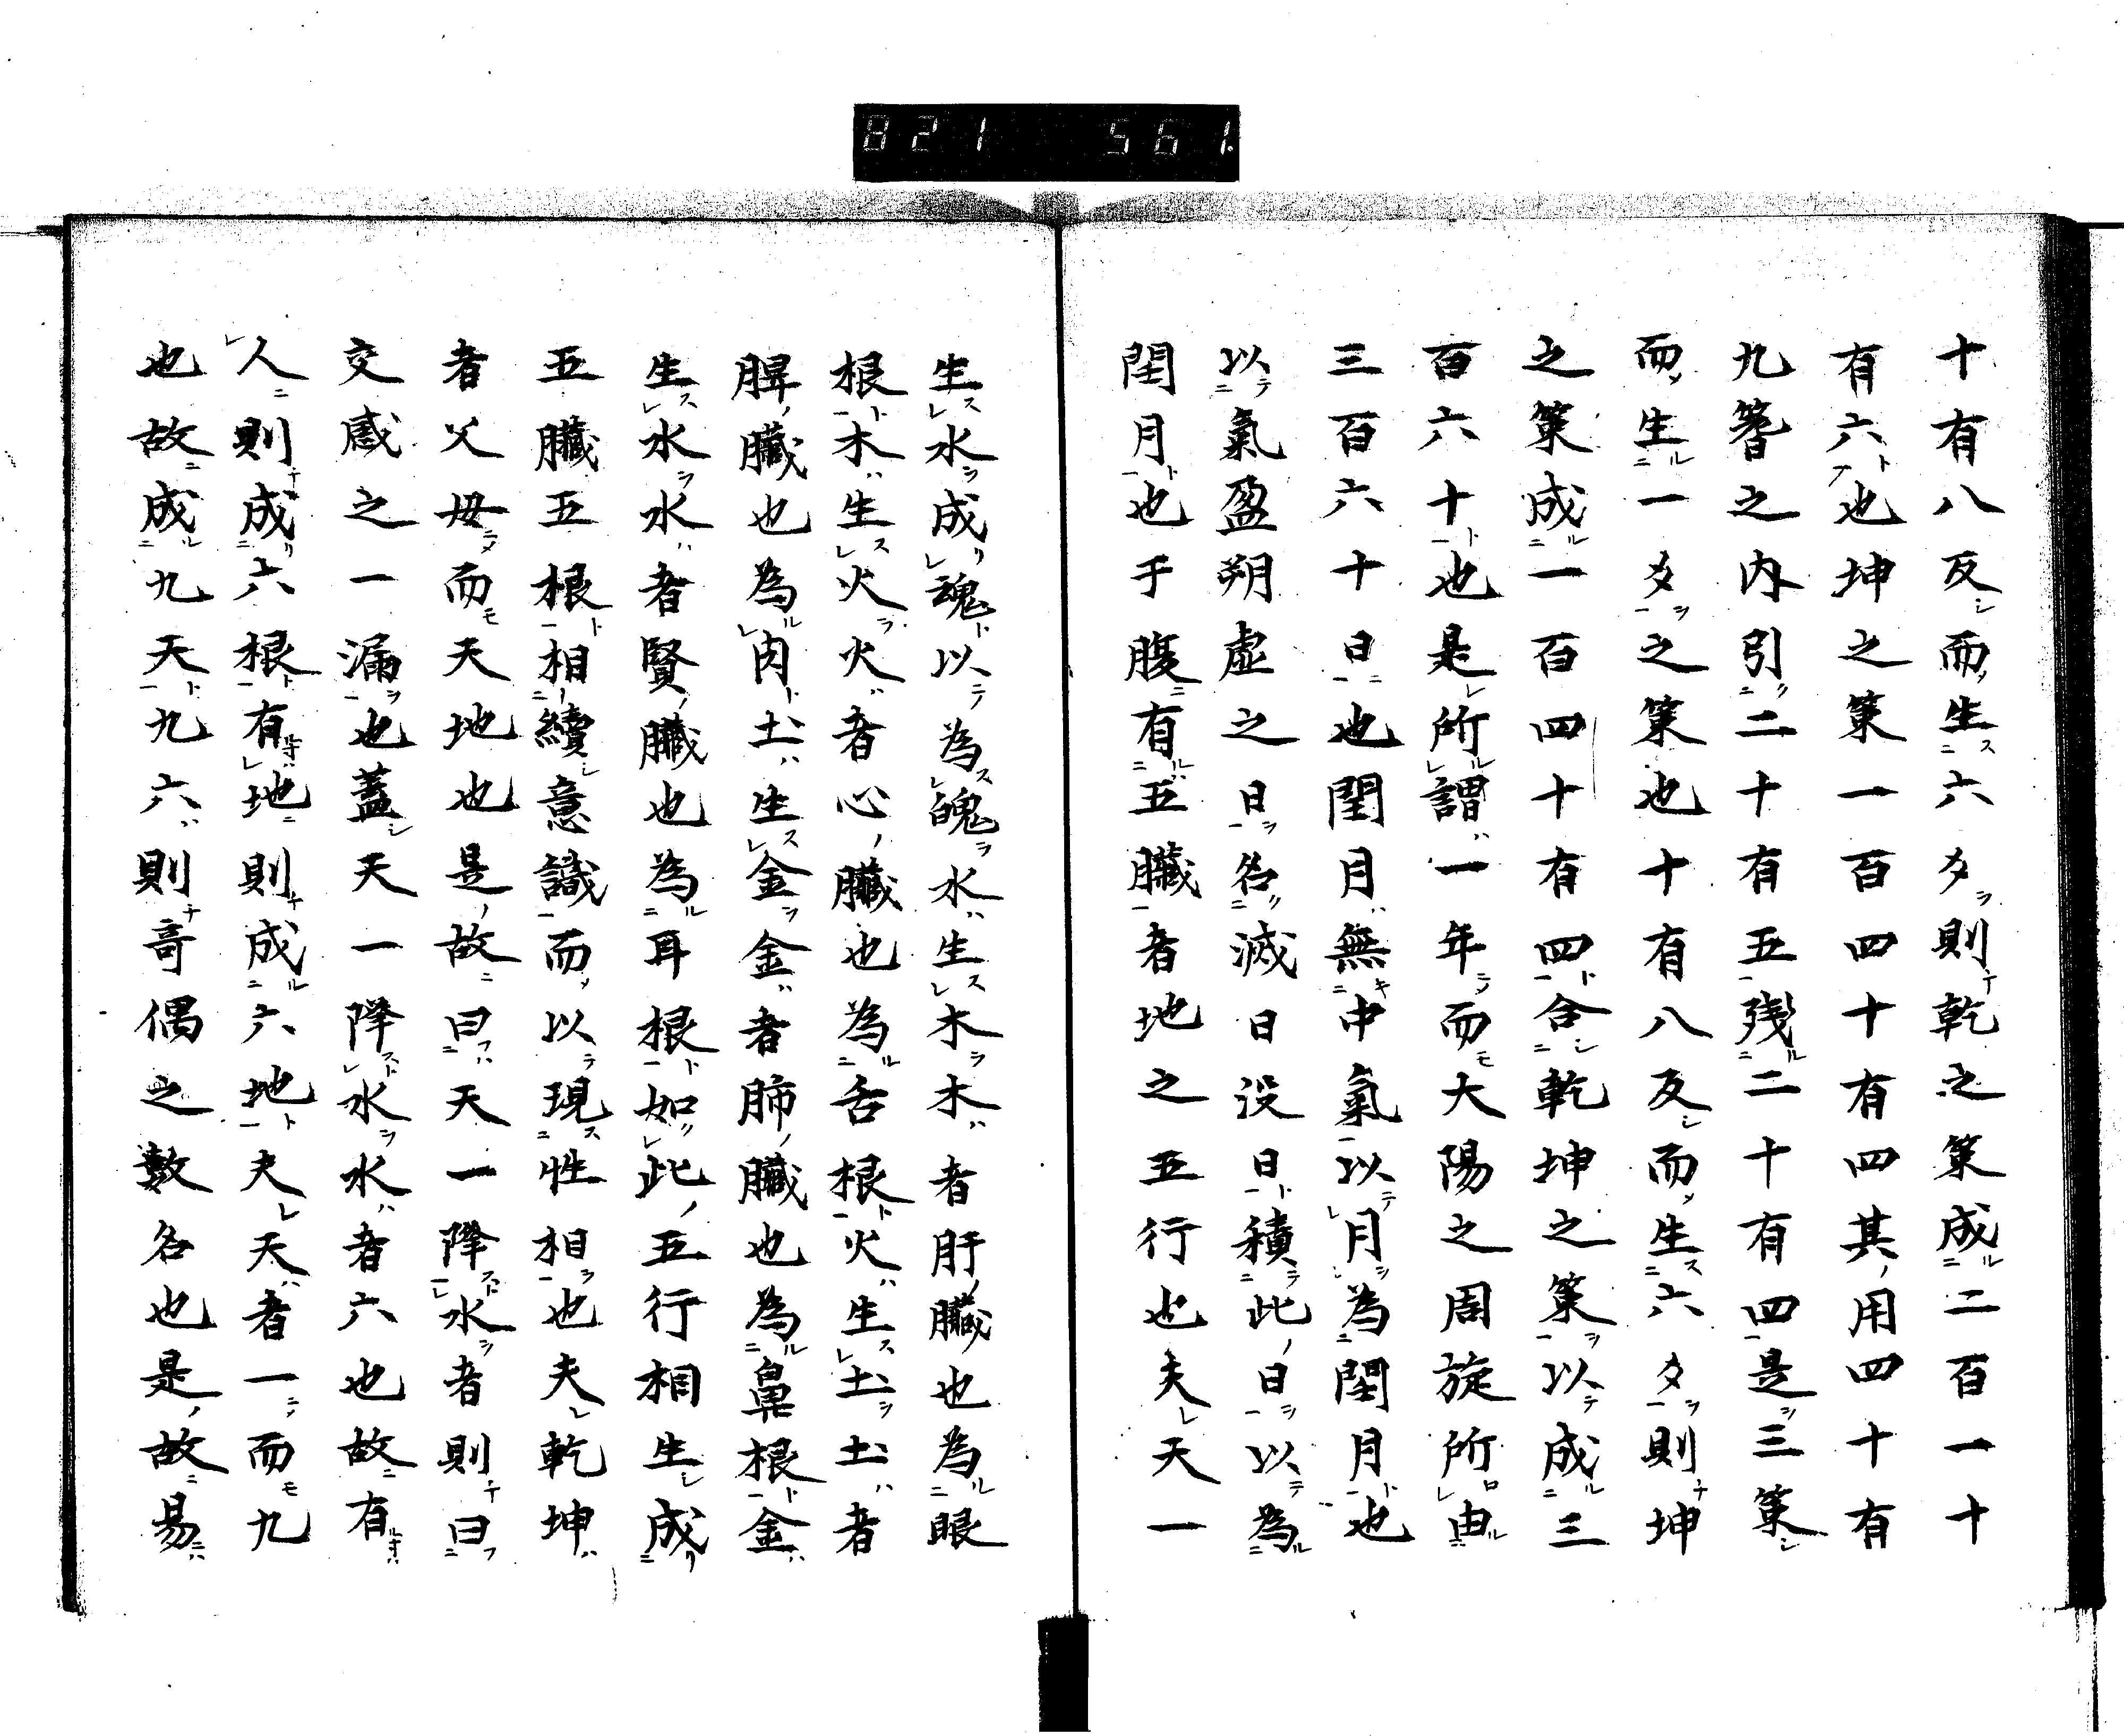 821 561.
十有八反而生六爻則乾之策成二百一十
有六也坤之策一百四十有四其用四十有
九筭之内引二十有五残二十有四是三策
而生一爻之策也十有八反而生六爻則坤
之策成一百四十有四合乾坤之策以成三
百六十也是所謂一年而大陽之周旋所由
三百六十日也閏月無中氣以月為閏月也
以氣盈朔虚之日名滅日没日積此日以為
閏月也于腹有五臓者地之五行也夫天一
生水成魂以為魄水生木木者肝臓也為眼
根木生火火者心臓也為舌根火生土土者
脾臓也為肉土生金金者肺臓也為鼻根金
生水水者賢臓也為耳根如此五行相生成
五臓五根相續意識而以現性相也夫乾坤
者父母而天地也是故曰天一降水者則曰
交感之一漏也蓋天一降水水者六也故有
人則成六根有地則成六地夫天者一而九
也故成九天九六則奇偶之數名也是故易